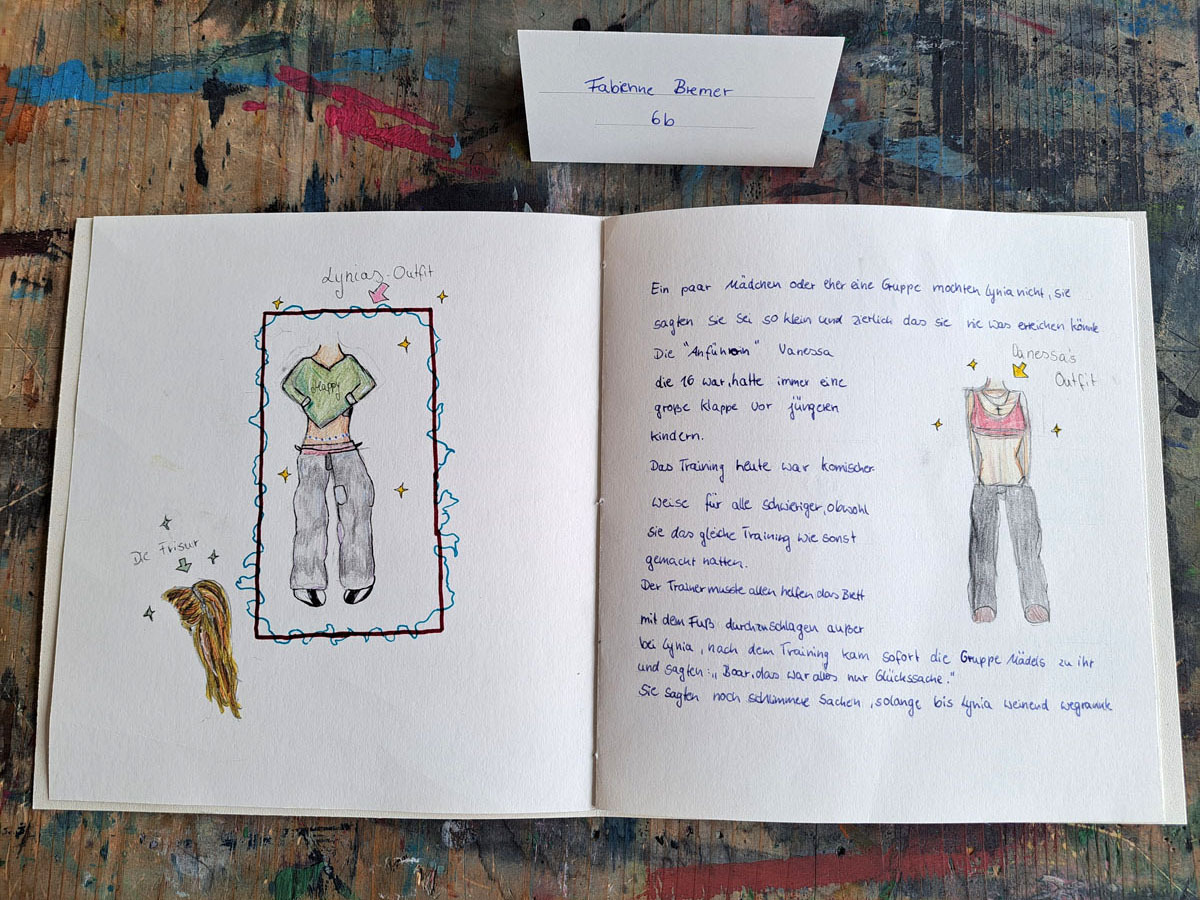 Fabienne Bremer
6b
Lynias-Outfit
Happy
Die Frisur
Ein paar Mädchen oder eher eine Gruppe mochten Lynia nicht, sie
sagten sie sei so klein und zierlich das sie nie was erreichen könnte
Die "Anführerin" Vanessa
die 16 war, hatte immer eine
große Klappe vor jüngeren
kindern.
Vanessa's
Outfit
Das Training heute war komischer
weise für alle schwieriger, obwohl
sie das gleiche Training wie sonst
gemacht hatten.
Der Trainer musste allen helfen das Brett
mit dem Fuß durchzuschlagen außer
bei Lynia, nach dem Training kam sofort die Gruppe Mädels zu ihr
und sagten: „Boar, das war alles nur Glückssache."
Sie sagten noch schlimmere Sachen, solange bis Lynia weinend wegrannte